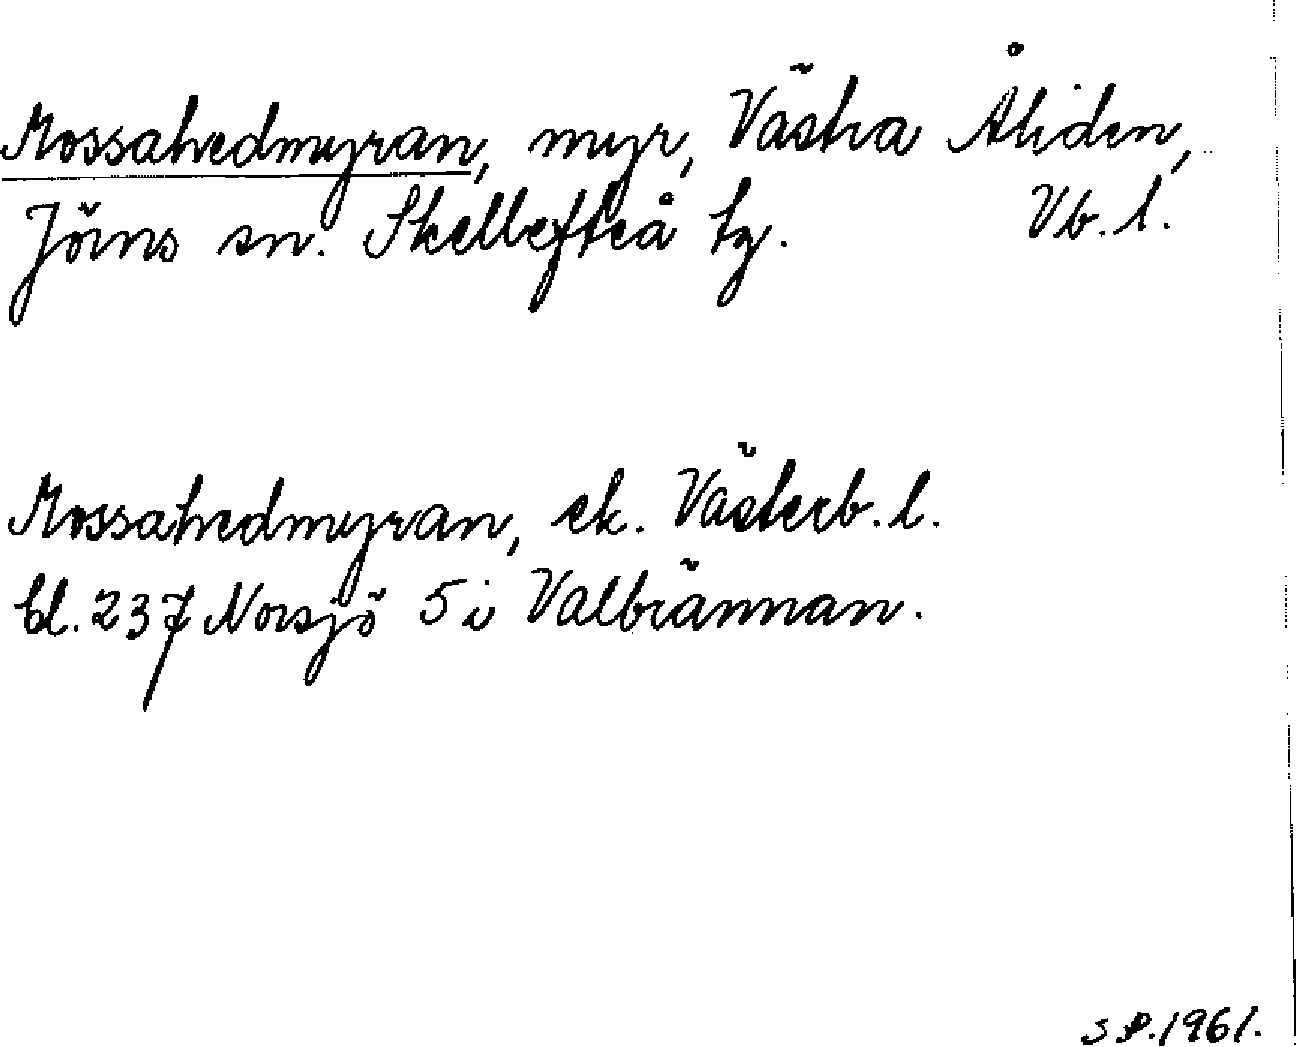 Mossahedmyran, myr, Västra Åliden,
Jörns sn. Skellefteå tg. Vb. l.
Mossahedmyran, ek. Västerb. l.
bl. 237 Norsjö 5 i Valbrännan.
S P. 1961.